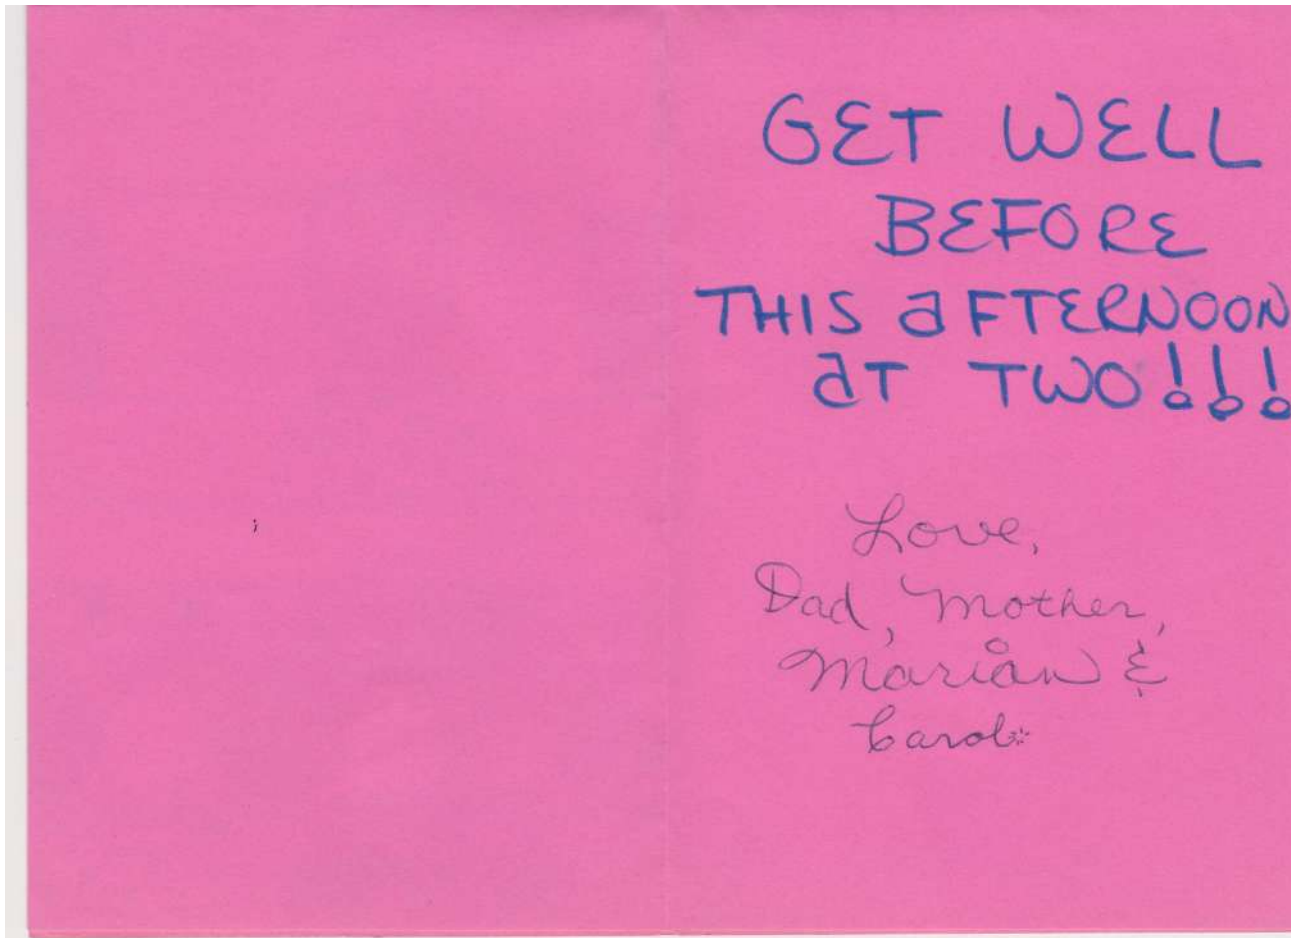 GET WELL
BEFORE
THIS aFTERNOON
aT TWO!!!
Love,
Dad, Mother,
Marian &
Carol